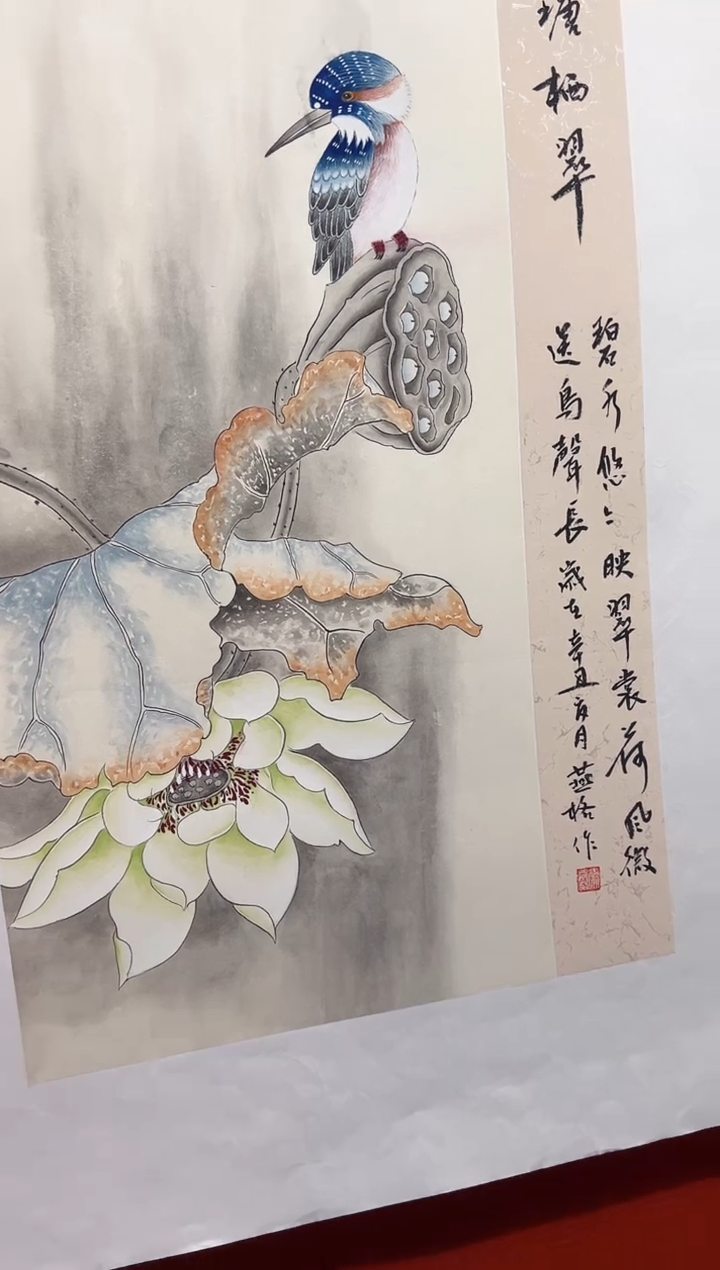 塘栖翠
碧水悠々映翠裳荷风微
送鳥聲長歲在辛丑亥月燕
作